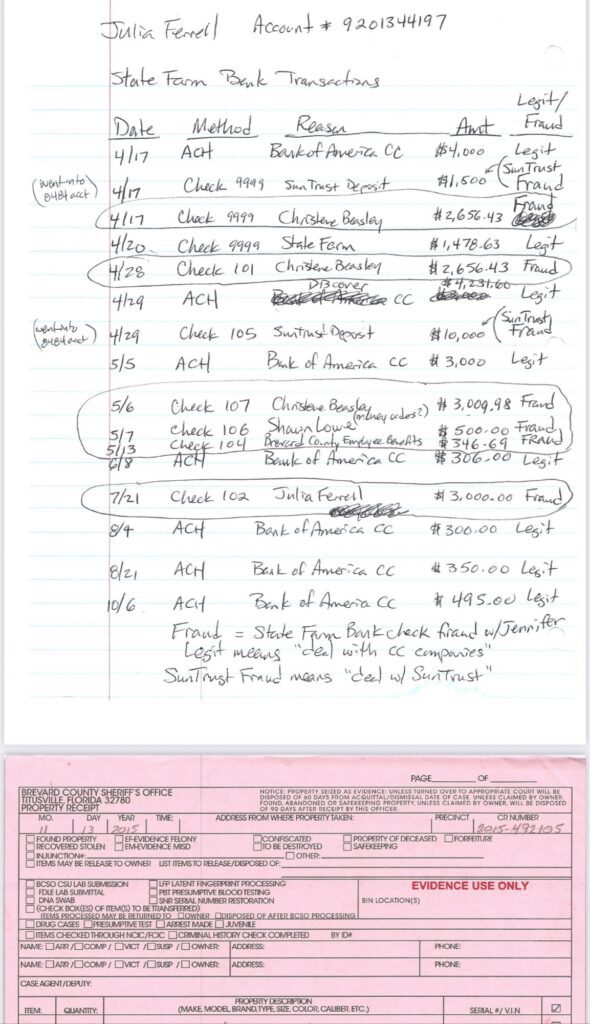 Julia Ferrell Account # 9201344197
State Farm Bank Transactions
Date Method Reason Amt Legit/ Fraud
4/17 ACH Bank of America CC $4,000 Legit
(went into 8484 acct) 4/17 Check 9999 SunTrust Deposit $1,500 (SunTrust Fraud
4/17 Check 9999 Christene Beasley $2,656.43 Fraud
4/20 Check 9999 State Farm $1,478.63 Legit
4/28 Check 101 Christene Beasley $2,656.43 Fraud
4/29 ACH Discover CC $4,231.60 Legit
(went into 8484 acct) 4/29 Check 105 Suntrust Deposit $10,000 (SunTrust Fraud
5/5 ACH Bank of America CC $3,000 Legit
5/6 Check 107 Christene Beasley $3,009.98 Fraud
(money orders?)
5/7 Check 106 Shawn Lowe $500.00 Fraud
5/13 Check 104 Brevard County Employee Benefits $346.69 Fraud
6/8 ACH Bank of America CC $306.00 Legit
7/21 Check 102 Julia Ferrell $3,000.00 Fraud
8/4 ACH Bank of America CC $300.00 Legit
8/21 ACH Bank of America CC $350.00 Legit
10/6 ACH Bank of America CC $495.00 Legit
Fraud = State Farm Bank check fraud w/Jennifer
Legit means "deal with CC companies"
SunTrust Fraud means "deal w/ SunTrust"
PAGE____ OF ____
BREVARD COUNTY SHERIFF'S OFFICE
TITUSVILLE, FLORIDA 32780
PROPERTY RECEIPT
NOTICE: PROPERTY SEIZED AS EVIDENCE: UNLESS TURNED OVER TO APPROPRIATE COURT WILL BE
DISPOSED OF 60 DAYS FROM ACQUITTAL/DISMISSAL DATE OF CASE. UNLESS CLAIMED BY OWNER,
FOUND, ABANDONED OR SAFEKEEPING PROPERTY, UNLESS CLAIMED BY OWNER, WILL BE DISPOSED
OF 90 DAYS AFTER RECEIPT BY THIS OFFICER.
MO. DAY YEAR TIME: ADDRESS FROM WHERE PROPERTY TAKEN: PRECINCT CR NUMBER
11 13 2015 2015-492105
FOUND PROPERTY EF-EVIDENCE FELONY CONFISCATED PROPERTY OF DECEASED FORFEITURE
RECOVERED STOLEN EM-EVIDENCE MISD TO BE DESTROYED SAFEKEEPING
INJUNCTION#: OTHER:
ITEMS MAY BE RELEASED TO OWNER LIST ITEMS TO RELEASE/DISPOSED OF:
BCSO CSU LAB SUBMISSION LFP LATENT FINGERPRINT PROCESSING EVIDENCE USE ONLY
FDLE LAB SUBMITTAL PBT PRESUMPTIVE BLOOD TESTING
DNA SWAB SNR SERIAL NUMBER RESTORATION BIN LOCATION(S)
(CHECK BOX(ES) OF ITEM(S) TO BE TRANSFERRED)
ITEMS PROCESSED MAY BE RETURNED TO OWNER DISPOSED OF AFTER BCSO PROCESSING
DRUG CASES PRESUMPTIVE TEST ARREST MADE JUVENILE
ITEMS CHECKED THROUGH NCIC/FCIC CRIMINAL HISTORY CHECK COMPLETED BY ID#
NAME: ARR / COMP / VICT / SUSP / OWNER: ADDRESS: PHONE:
NAME: ARR / COMP / VICT / SUSP / OWNER: ADDRESS: PHONE:
CASE AGENT/DEPUTY:
ITEM: QUANTITY: PROPERTY DESCRIPTION (MAKE, MODEL, BRAND, TYPE, SIZE, COLOR, CALIBER, ETC.) SERIAL #/ V.I.N